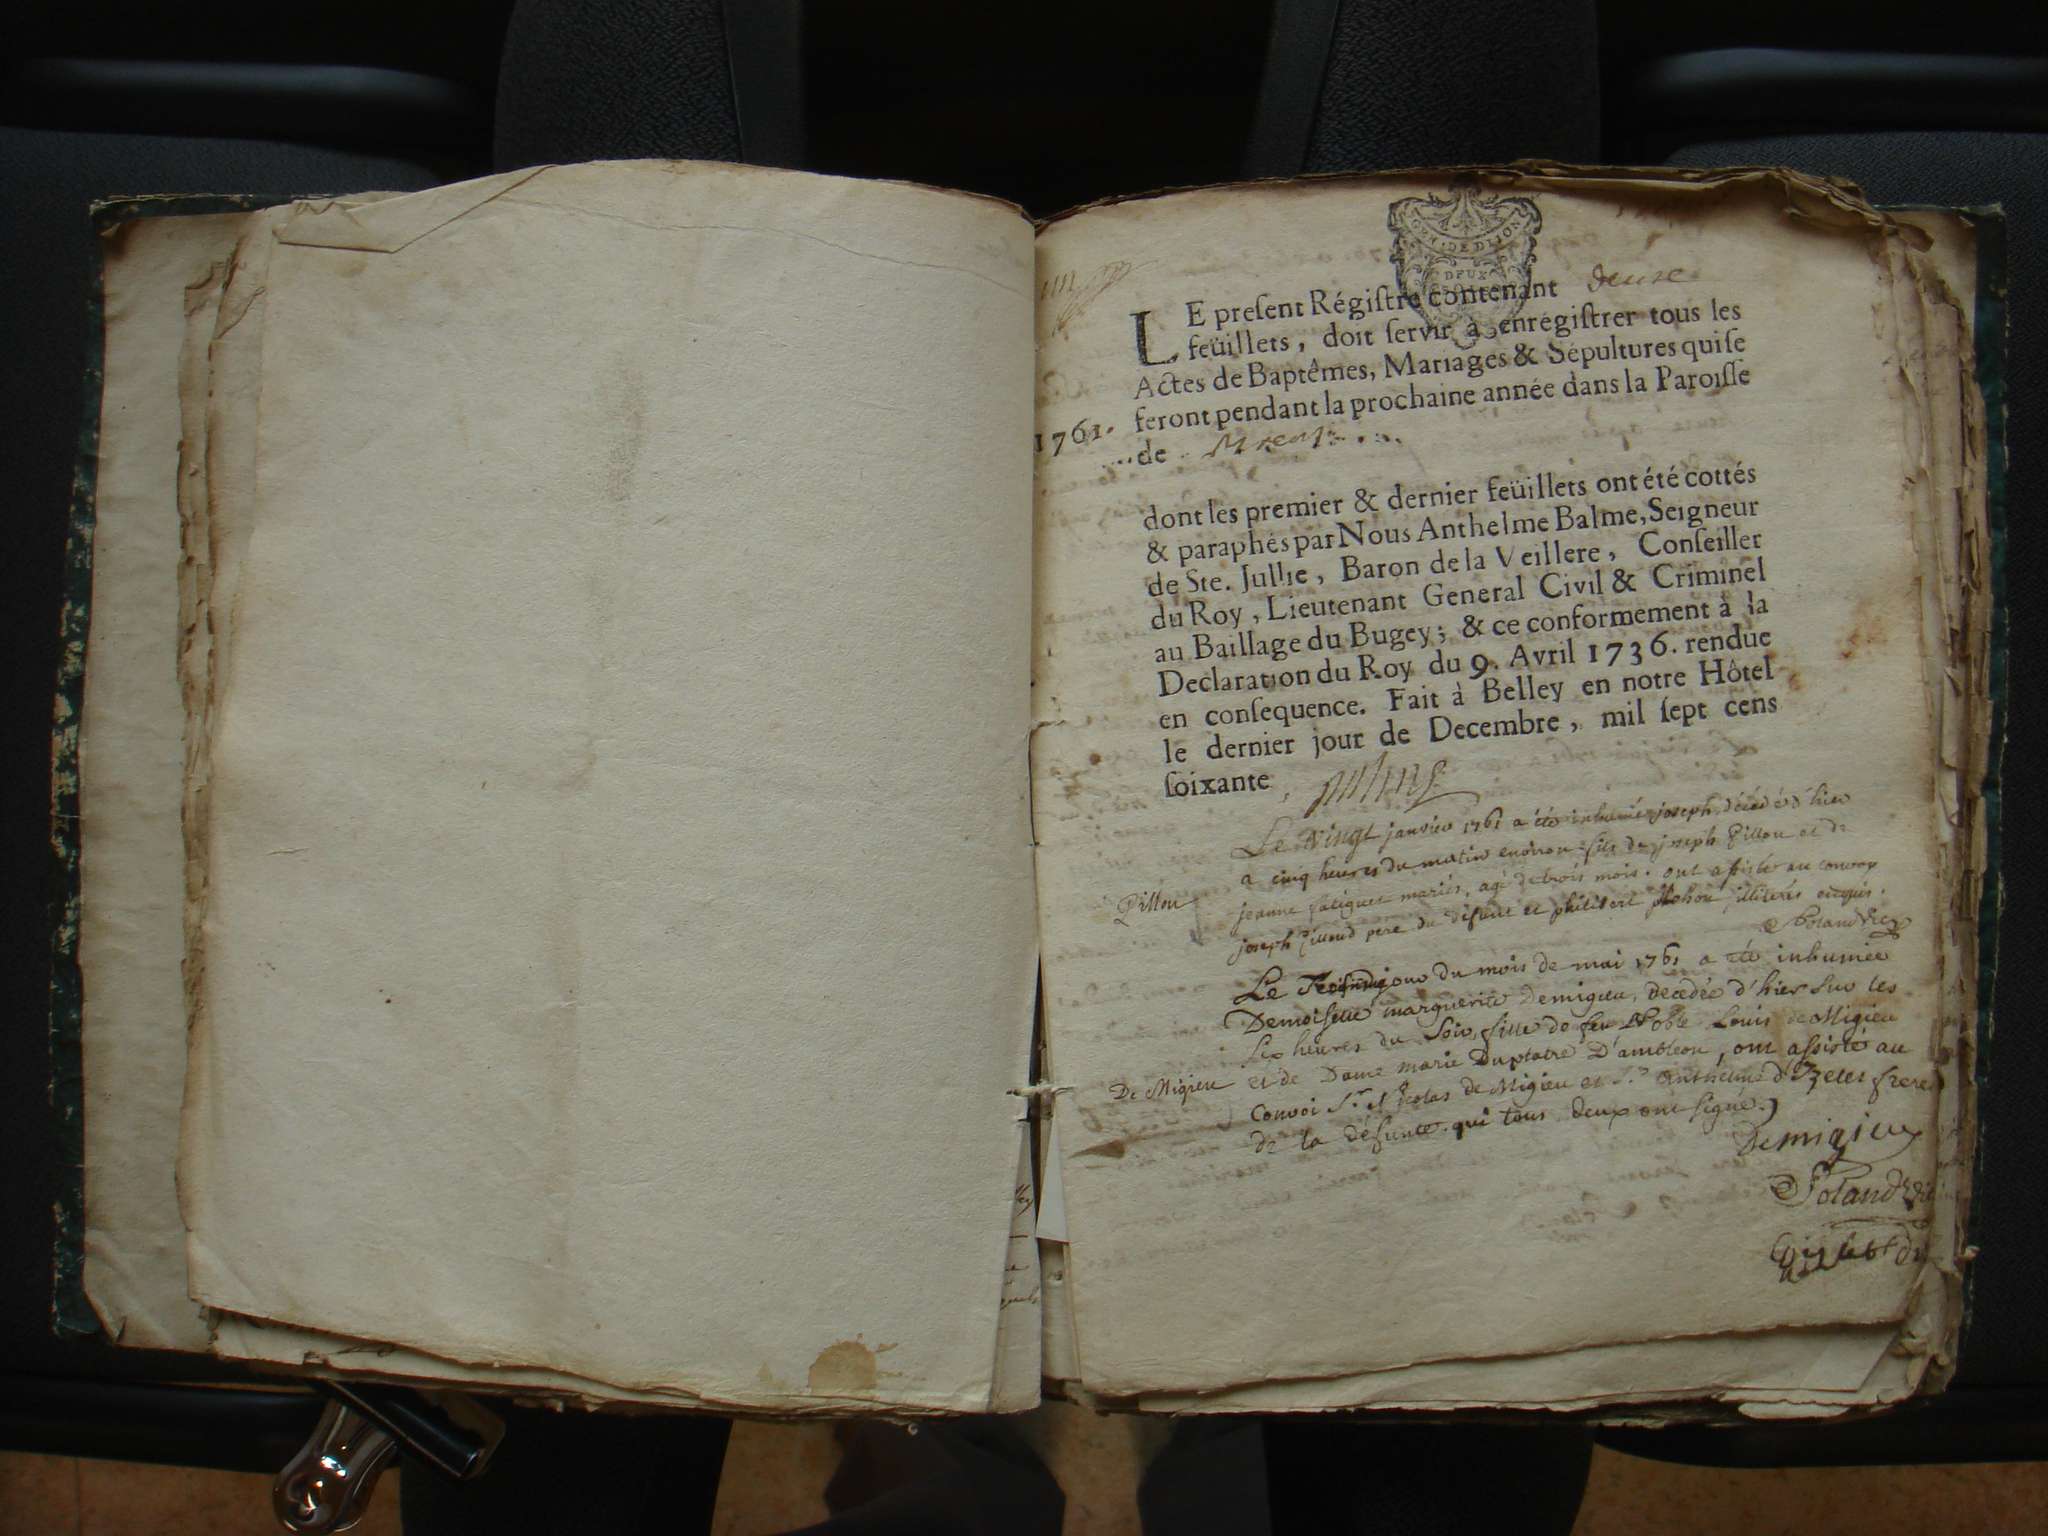 GEN. DE DIJON
DEUX
LE preſent Régiſtre contenant deuse
feüillets, doit ſervir à enrégiſtrer tous les
Actes de Baptêmes, Mariages & Sépultures qui ſe
1761. feront pendant la prochaine année dans la Paroiſſe
de
dont les premier & dernier feüillets ont été cottés
& paraphés par Nous Anthelme Balme, Seigneur
de Ste. Jullie, Baron de la Veillere, Conſeiller
du Roy, Lieutenant General Civil & Criminel
au Baillage du Bugey; & ce conformement à la
Declaration du Roy du 9. Avril 1736. rendue
en conſequence. Fait à Belley en notre Hôtel
le dernier jour de Decembre, mil ſept cens
ſoixante
Le vingt janvier 1761 a été inhumé joseph décédé d'hier
a cinq heures du matin environ fils de joseph Pillou et de
Pillou
jeanne fatiguet mariés, agé de trois mois. ont assisté au convoy
joseph Pilloud pere du défunt et philibert illiterés enquis.
Poland
Le jour du mois de mai 1761 a été inhumée
Demoiselle marguerite Demigieu, décedée d'hier sur les
six heures du soir, fille de feu Noble Louis de Migieu
De Migieu et de Dame marie Duplatre D'ambleon, ont assisté au
Convoi Sr. Nicolas de Migieu et Sr. Anthelme d'Izeles freres
de la défunte. qui tous deux ont signé.
Demigieu
Poland